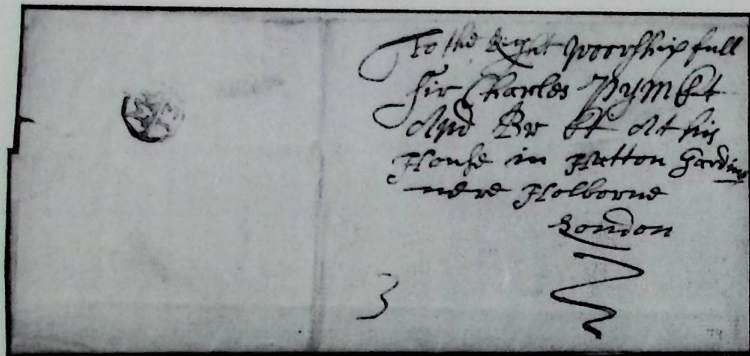 To the Right worshipfull
Sir Charles Pym kt
And Br kt At his
House in Hatton Gardine
nere Holborne
London
3